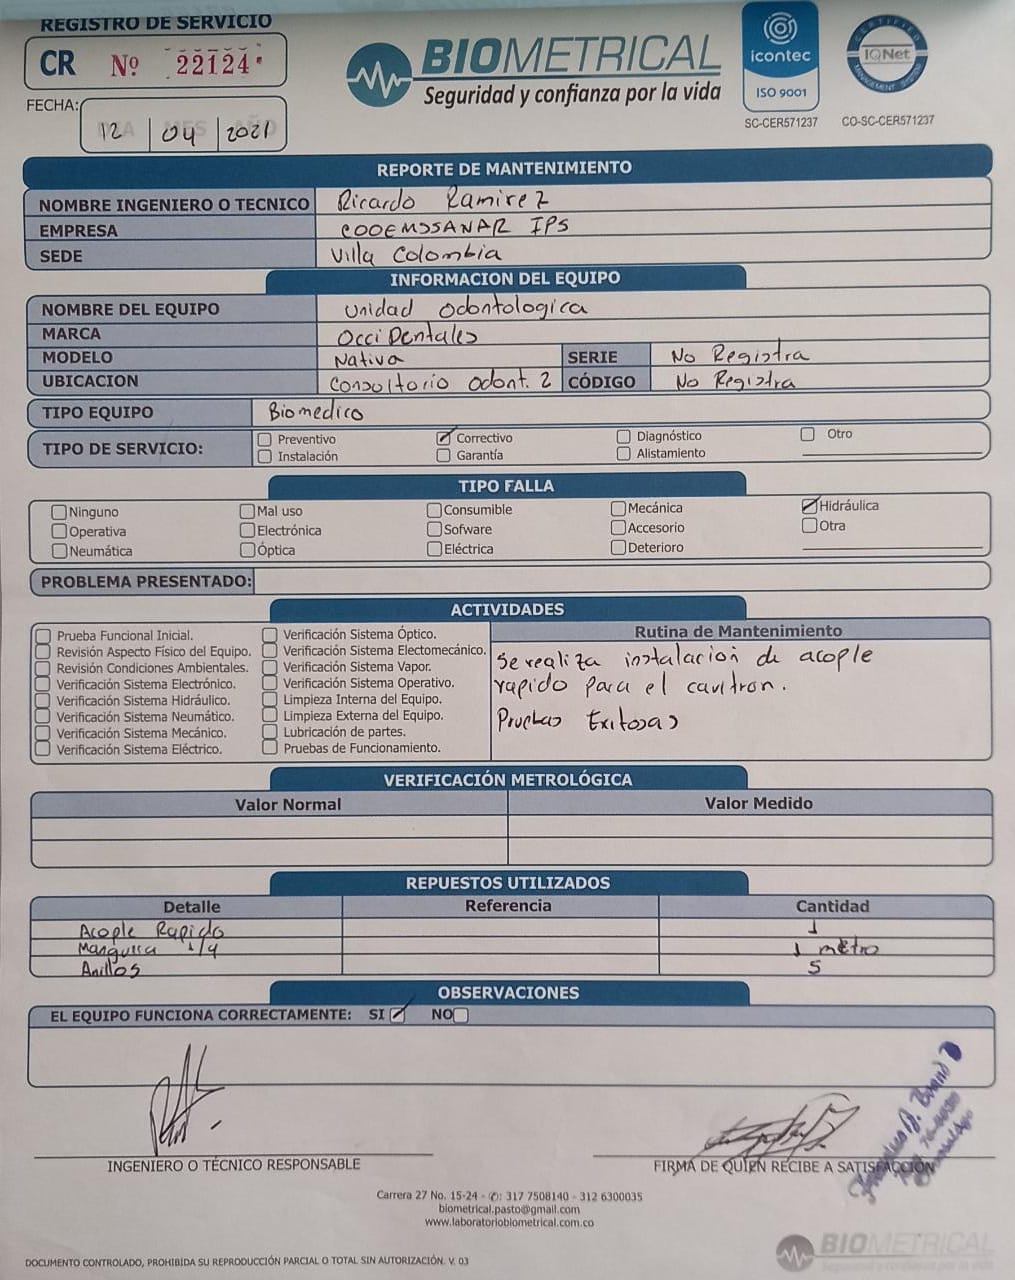 REGISTRO DE SERVICIO
CR Nº 22124
FECHA: 12 04 2021
BIOMETRICAL
Seguridad y confianza por la vida
icontec
ISO 9001
SC-CER571237
CERTIFIED
IQNet
MANAGEMENT SYSTEM
CO-SC-CER571237
REPORTE DE MANTENIMIENTO
NOMBRE INGENIERO O TECNICO Ricardo Ramirez
EMPRESA COOEMSSANAR IPS
SEDE Villa Colombia
INFORMACION DEL EQUIPO
NOMBRE DEL EQUIPO Unidad Odontologica
MARCA Occi Dentales
MODELO Nativa SERIE No Registra
UBICACION Consultorio Odont. 2 CÓDIGO No Registra
TIPO EQUIPO Biomedico
TIPO DE SERVICIO:
Preventivo Correctivo Diagnóstico Otro
Instalación Garantía Alistamiento
TIPO FALLA
Ninguno Mal uso Consumible Mecánica Hidráulica
Operativa Electrónica Sofware Accesorio Otra
Neumática Óptica Eléctrica Deterioro
PROBLEMA PRESENTADO:
ACTIVIDADES
Prueba Funcional Inicial.
Revisión Aspecto Físico del Equipo.
Revisión Condiciones Ambientales.
Verificación Sistema Electrónico.
Verificación Sistema Hidráulico.
Verificación Sistema Neumático.
Verificación Sistema Mecánico.
Verificación Sistema Eléctrico.
Verificación Sistema Óptico.
Verificación Sistema Electomecánico.
Verificación Sistema Vapor.
Verificación Sistema Operativo.
Limpieza Interna del Equipo.
Limpieza Externa del Equipo.
Lubricación de partes.
Pruebas de Funcionamiento.
Rutina de Mantenimiento
Se realiza instalacion de acople
rapido para el cavitron.
Pruebas Exitosas
VERIFICACIÓN METROLÓGICA
Valor Normal Valor Medido
REPUESTOS UTILIZADOS
Detalle Referencia Cantidad
Acople Rapido 1
Manguera 1/4 1 metro
Anillos 5
OBSERVACIONES
EL EQUIPO FUNCIONA CORRECTAMENTE: SI NO
INGENIERO O TÉCNICO RESPONSABLE
FIRMA DE QUIEN RECIBE A SATISFACCIÓN
Carrera 27 No. 15-24 - ✆: 317 7508140 - 312 6300035
biometrical.pasto@gmail.com
www.laboratoriobiometrical.com.co
DOCUMENTO CONTROLADO, PROHIBIDA SU REPRODUCCIÓN PARCIAL O TOTAL SIN AUTORIZACIÓN. V. 03
BIOMETRICAL
Seguridad y confianza por la vida